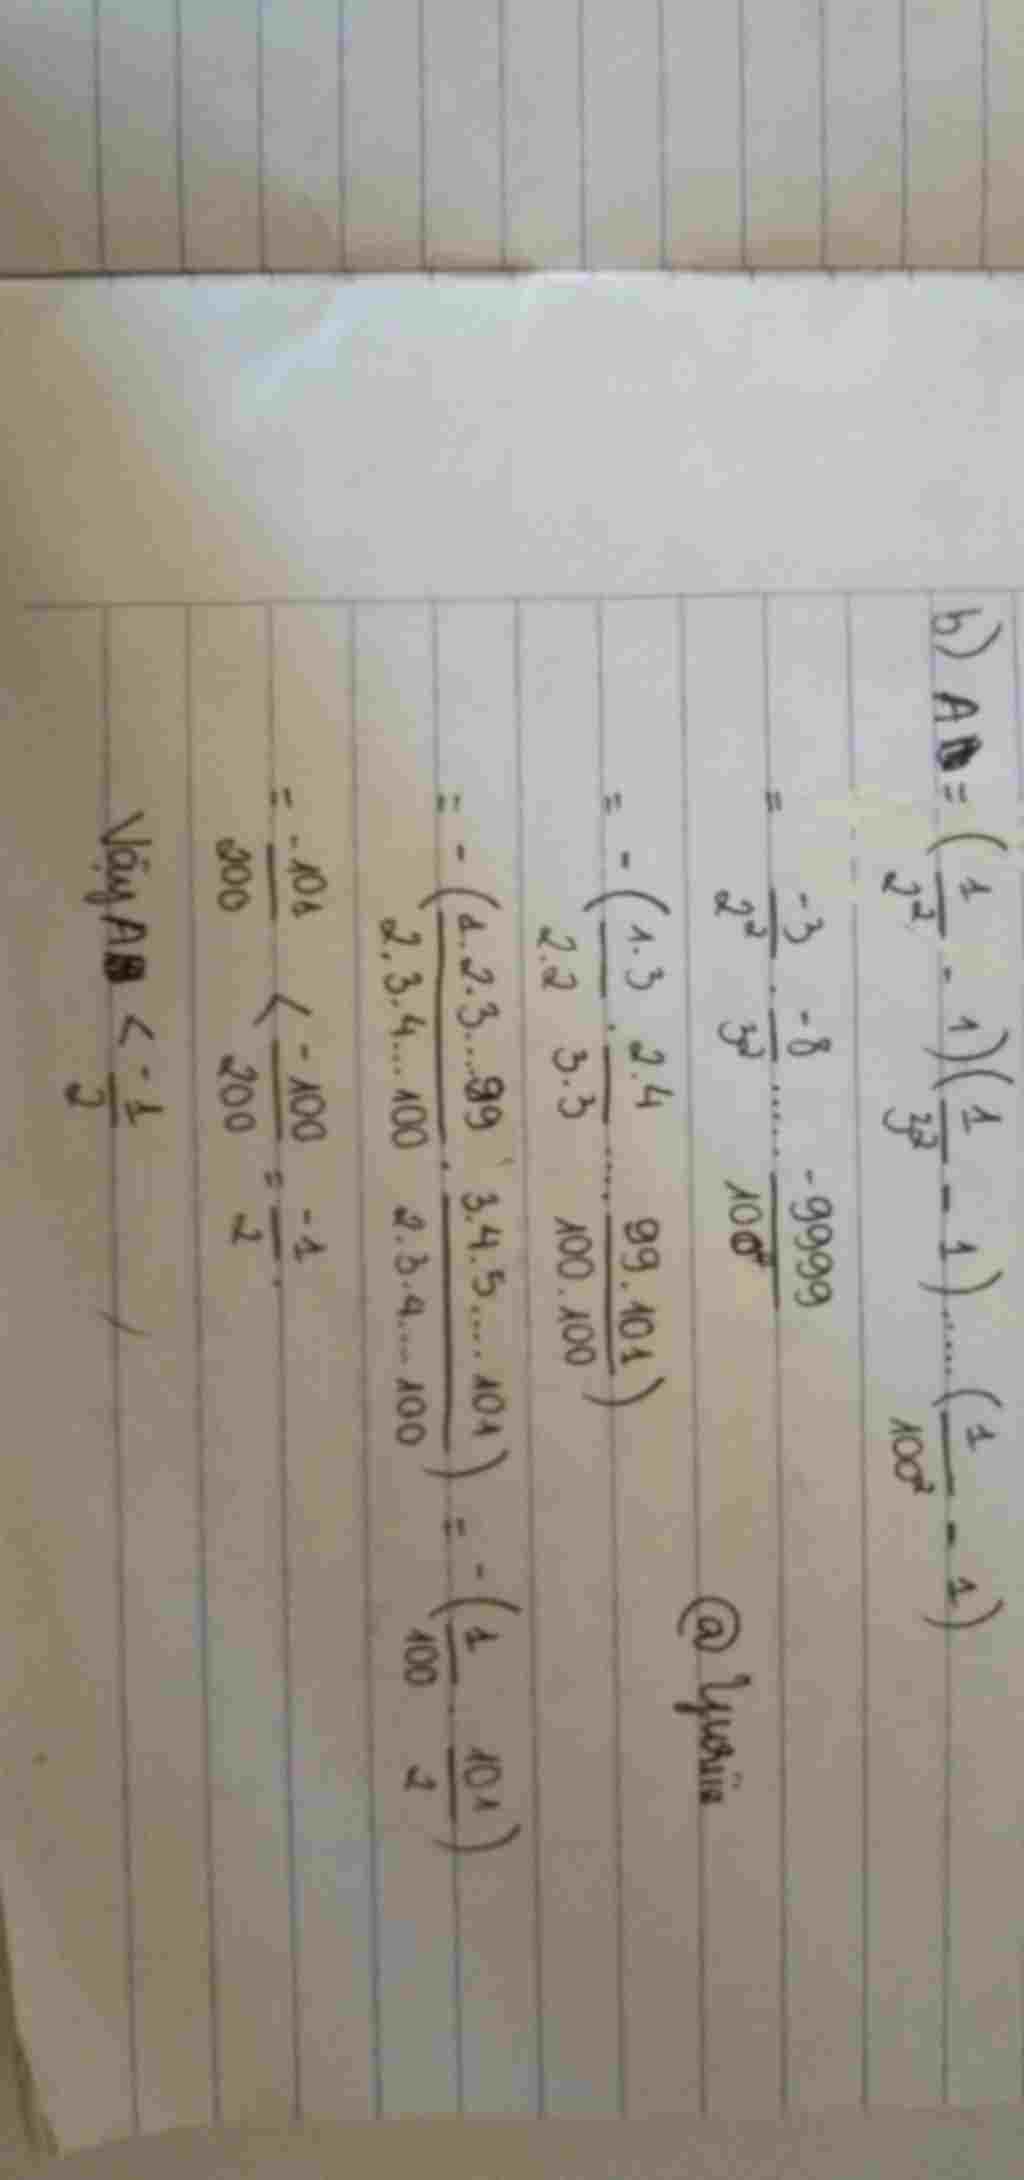 b) A = (1/2² - 1)(1/3² - 1).....(1/100² - 1)
= -3/2² . -8/3² ..... -9999/100²
@ Yuoriio
= - (1.3/2.2 . 2.4/3.3 .... 99.101/100.100)
= - (1.2.3...99/2.3.4...100 . 3.4.5....101/2.3.4...100) = - (1/100 . 101/2)
= -101/200 < -100/200 = -1/2 .
Vậy A < -1/2